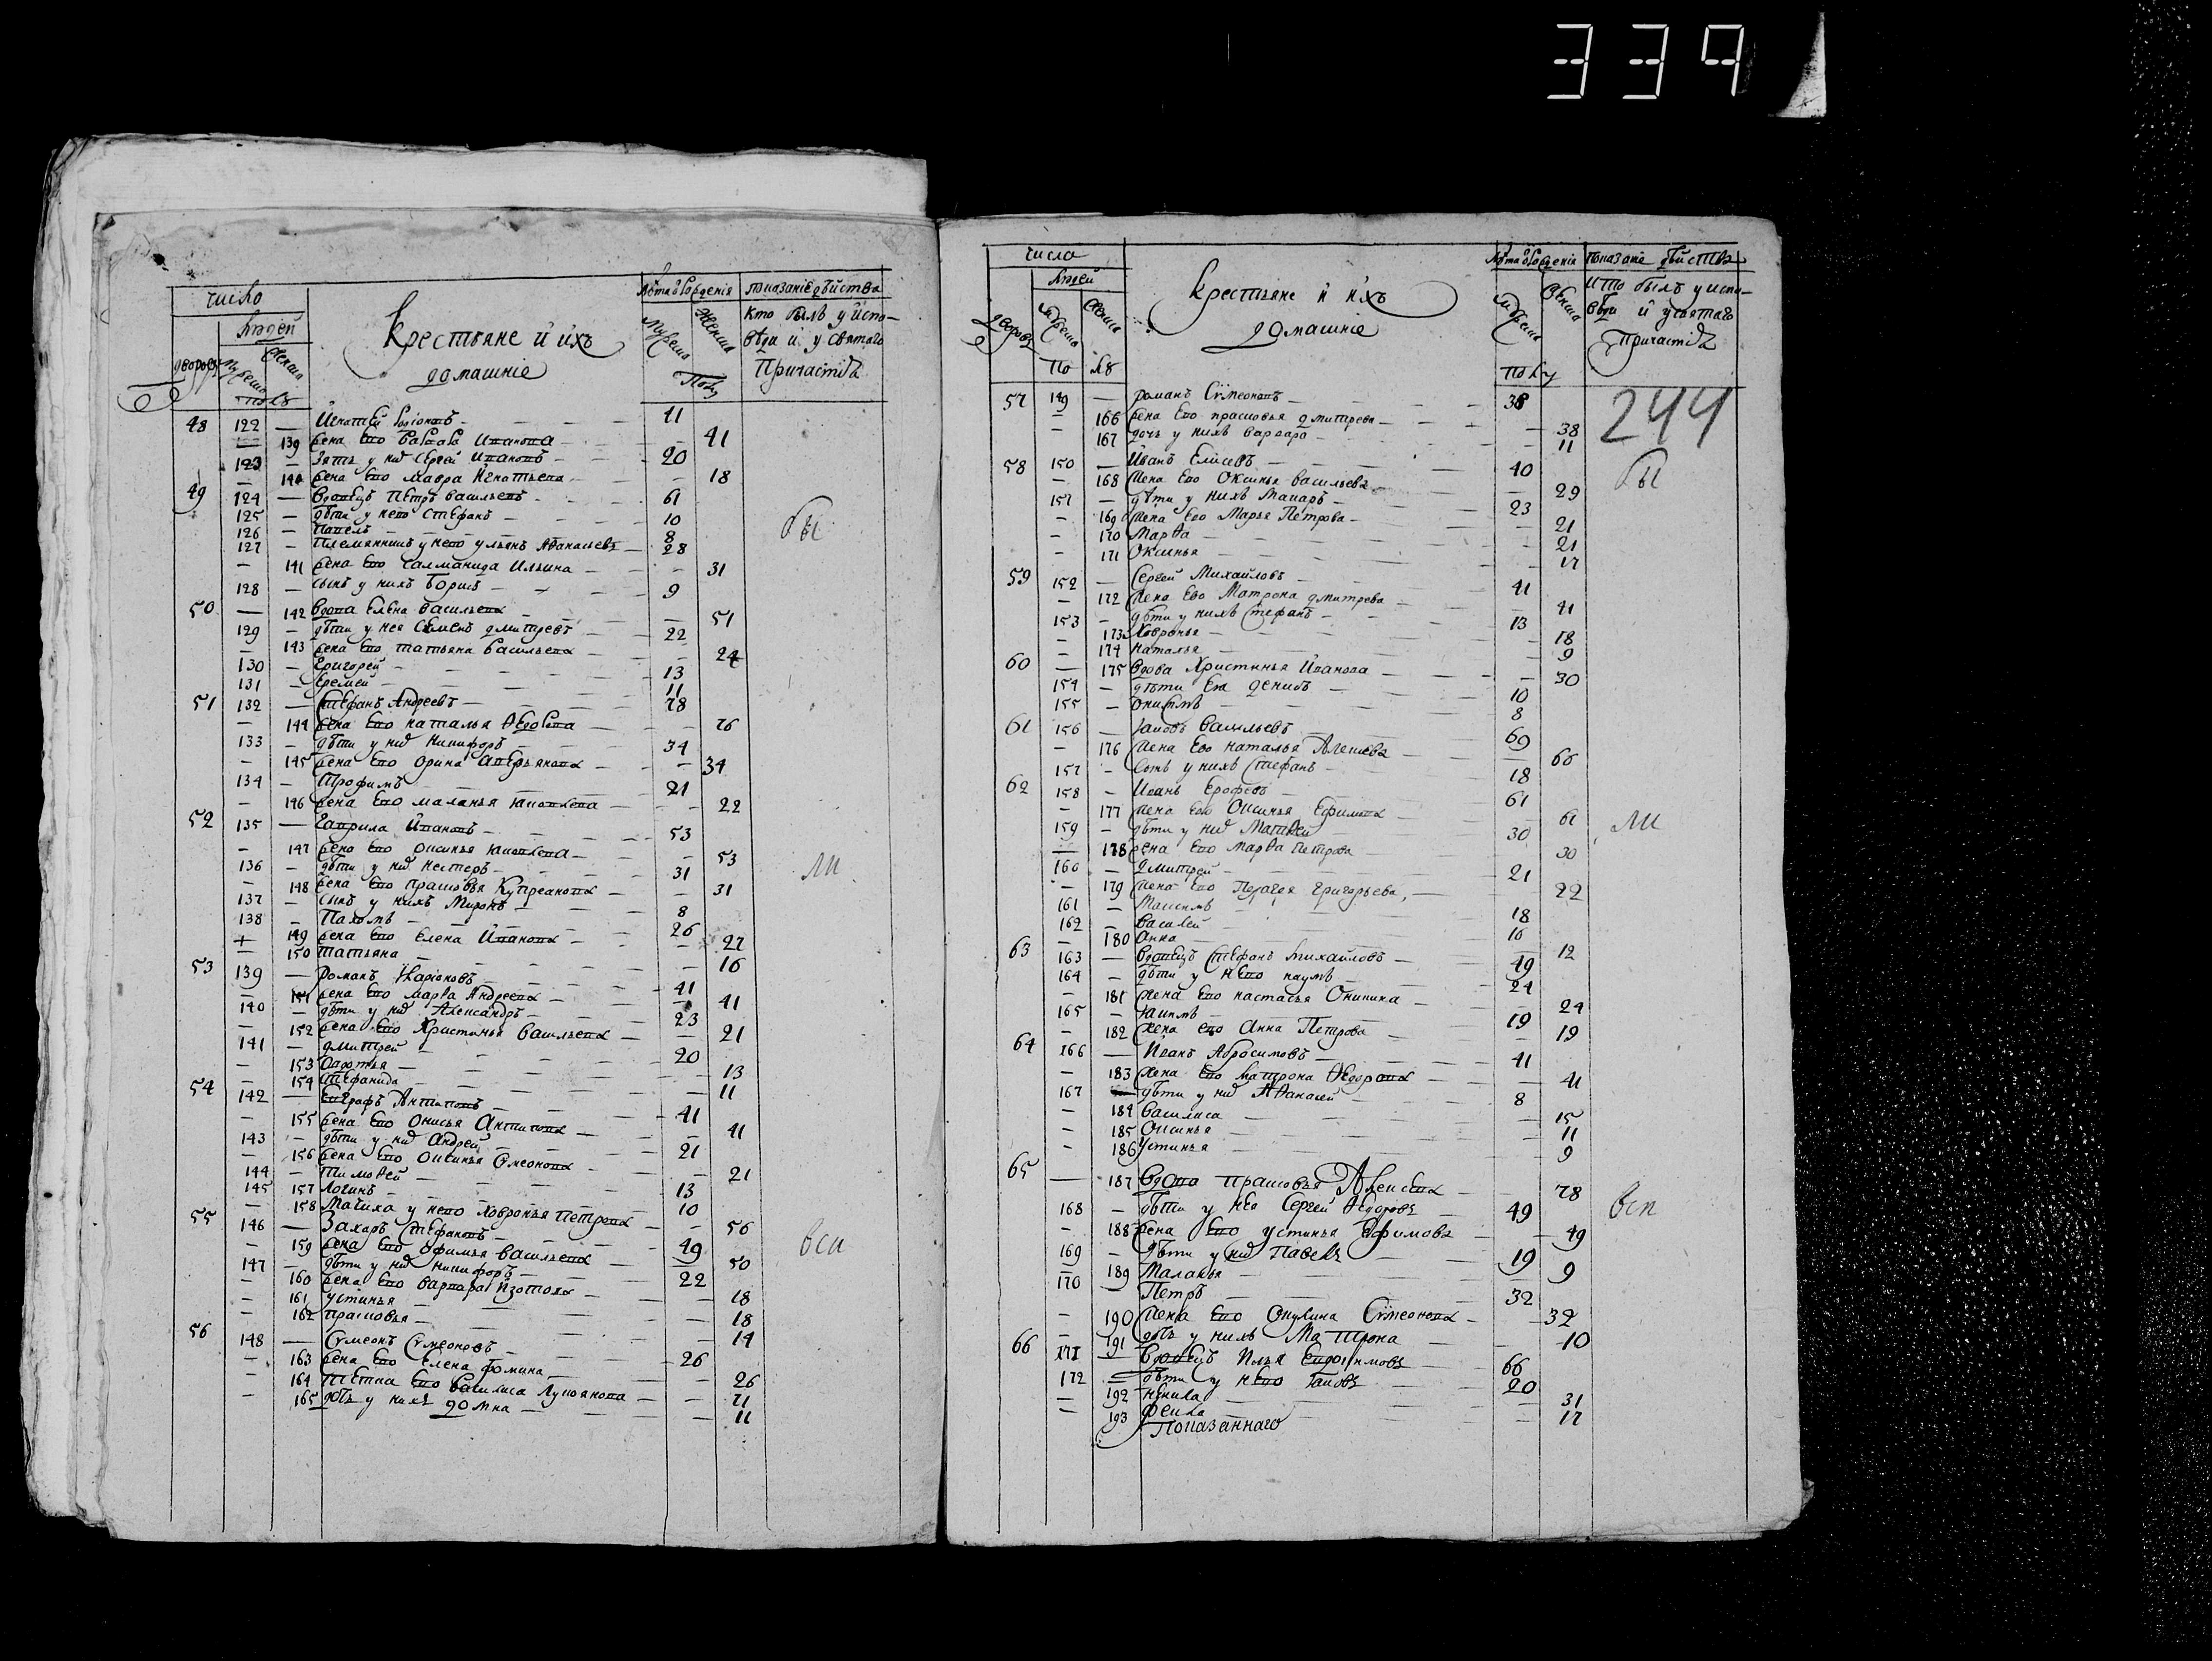 339
число
людей
дворовъ
мужеска
женска
полъ
Крестьяне и ихъ
домашніе
Лѣта от рожденія
мужеска
женска
полу
показаніе действа
кто былъ у испо-
вѣди и у святаго
Причастія
48 122 — Игнатей Родіоновъ — 41
— 139 жена Ево Варвара Иванова — 41
123 — зять у них Сергей Ивановъ — 20
— 140 жена Ево Мавра Игнатьева — 18
49 124 — вдовецъ Петръ васильевъ — 61
125 — дѣти у нево Стефанъ — 10
126 — Павелъ — 8
127 — Племянникъ у нево ульянъ Афанасьевъ — 28
— 141 жена Ево Салманида Ильина — 31
128 — сынъ у нихъ Борисъ — 9
бы
50 — 142 вдова Елена васильева — 51
129 — дѣти у нея Семенъ дмитревъ — 22
— 143 жена Ево татьяна васильева — 24
130 — Григорей — 13
131 — Еремей — 11
51 132 — Стефанъ Андреевъ — 78
— 144 жена Ево наталья Ѳедорова — 76
133 — дѣти у них Никифоръ — 34
— 145 жена Ево орина Аверьянова — 34
134 — Трофимъ — 21
— 146 жена Ево маланья Яковлева — 22
52 135 — Гаврила Ивановъ — 53
— 147 жена Ево оксинья Яковлева — 53
136 — дѣти у них Нестеръ — 31
— 148 жена Ево прасковья Купреанова — 31
137 — сынъ у нихъ Миронъ — 8
138 — Пахомъ — 26
— 149 жена Ево Елена Иванова — 27
— 150 татьяна — 16
ли
53 139 — романъ Иларіоновъ — 41
— 151 жена Ево марѳа Андреева — 41
140 — дѣти у них Александръ — 23
— 152 жена Ево Христинья васильева — 21
141 — дмитрей — 20
— 153 Овдотья — 13
— 154 Стефанида — 11
54 142 — Евграфъ Антиповъ — 41
— 155 жена Ево Онисья Антипова — 41
143 — дѣти у них Андрей — 21
— 156 жена Ево Оксинья Симеонова — 21
144 — тимоѳей — 13
145 157 Логинъ — 10
— 158 Мачиха у нево Ховронья петрова — 56
55 146 — Захаръ Стефановъ — 49
— 159 жена Ево офимья васильева — 50
147 — дѣти у них никифоръ — 22
— 160 жена Ево варвара Изотова — 18
— 161 устинья — 18
— 162 прасковья — 14
всп
56 148 — Сѵмеонъ Сѵмеоновъ — 26
— 163 жена Ево Елена фомина — 26
— 164 тетка Ево василиса Лукьянова — 71
— 165 дочь у нихъ домна — 11
числа
людей
дворовъ
мужеска
женска
по лѣ
Крестьяне и ихъ
домашніе
Лѣта от рожденія
мужеска
женска
полу
показаніе дѣйства
кто былъ у испо-
вѣди и у святаго
Причастія
244
57 149 — романъ Сѵмеоновъ — 38
— 166 жена Ево прасковья дмитрева — 38
— 167 дочь у нихъ варвара — 11
58 150 — Иванъ Елисевъ — 40
— 168 жена Ево Оксинья васильева — 29
151 — дѣти у нихъ Макаръ — 23
— 169 жена Ево Марья Петрова — 21
— 170 Марѳа — 21
— 171 Оксинья — 17
бы
59 152 — Сергей Михайловъ — 41
— 172 жена Ево Матрона дмитрева — 41
153 — дѣти у нихъ Стефанъ — 13
— 173 Ховронья — 18
— 174 наталья — 9
60 — 175 вдова Христинья Иванова — 30
154 — дѣти Ея денисъ — 10
155 — онисимъ — 8
61 156 — Яковъ васильевъ — 69
— 176 жена Ево наталья Алексева — 66
157 — сынъ у нихъ Стефанъ — 18
62 158 — Иванъ Ерофевъ — 61
— 177 жена Ево Оксинья Ефимова — 61
159 — дѣти у них Матвей — 30
— 178 жена Ево марѳа петрова — 30
160 — дмитрей — 21
— 179 жена Ево Пелагея григорьева — 22
161 — Максимъ — 18
162 — василей — 16
— 180 анна — 12
ли
63 163 — вдовецъ Стефанъ михайловъ — 49
164 — дѣти у нево наумъ — 24
— 181 жена Ево настасья Оникина — 24
165 — Якимъ — 19
— 182 жена ево Анна Петрова — 19
64 166 — Иванъ Абросимовъ — 41
— 183 жена Ево матрона Ѳедорова — 41
167 — дѣти у них Аѳанасей — 8
— 184 василиса — 15
— 185 Оксинья — 11
— 186 устинья — 9
65 — 187 вдова прасковья Алексева — 78
168 — дѣти у нея Сергей Ѳедоровъ — 49
— 188 жена Ево устинья Ефимова — 49
169 — дѣти у них Павелъ — 19
— 189 Маланья — 9
170 — Петръ — 32
— 190 жена Ево Окулина Сѵмеонова — 32
— 191 дочь у нихъ Матрона — 10
всп
66 171 — вдовецъ Илья Евдокимовъ — 66
172 — дѣти у нево Яковъ — 20
— 192 ненила — 31
— 193 фекла — 17
Показаннаго